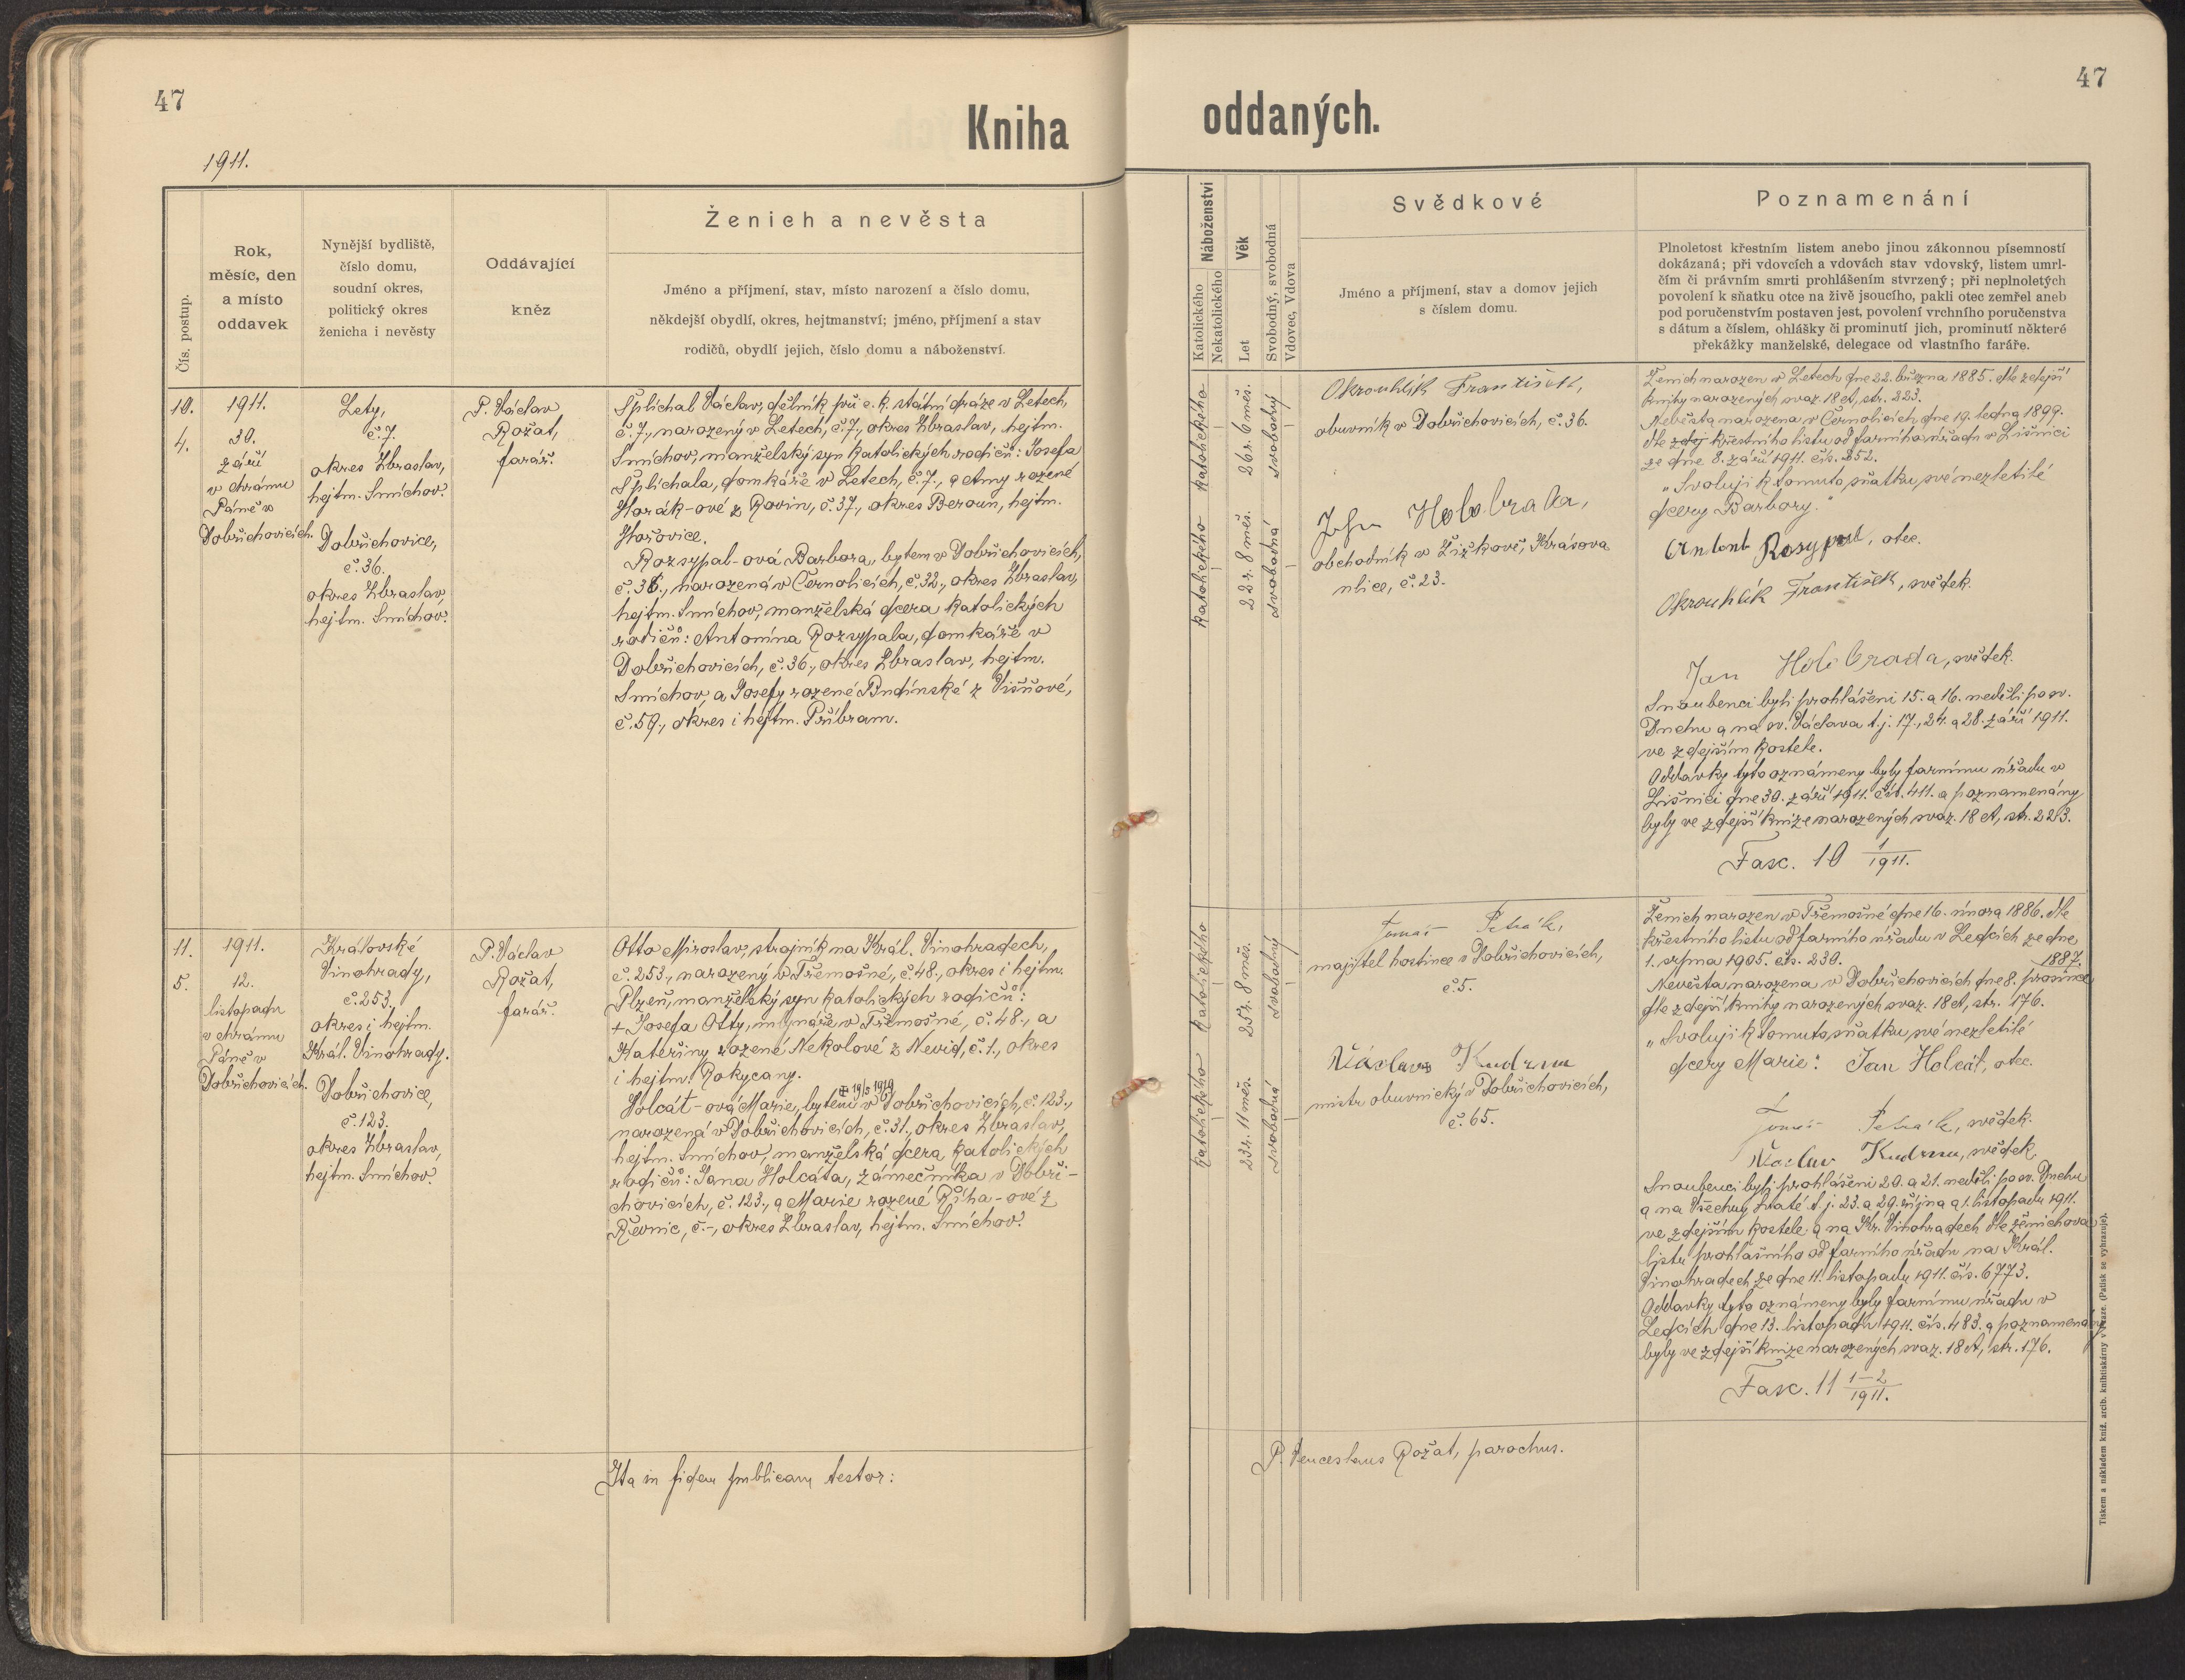 47
1911.
Kniha
Čís. postup.
Rok,
měsíc, den
a místo
oddavek
Nynější bydliště,
číslo domu,
soudní okres,
politický okres
ženicha i nevěsty
Oddávající
kněz
Ženich a nevěsta
Jméno a příjmení, stav, místo narození a číslo domu,
někdejší obydlí, okres, hejtmanství; jméno, příjmení a stav
rodičů, obydlí jejich, číslo domu a náboženství.
10.
4.
1911.
30.
září
v chrámu
Páně v
Dobřichovicích.
Lety,
č. 7.
okres Zbraslav,
hejtm. Smíchov.
Dobřichovice,
č. 36.
okres Zbraslav,
hejtm. Smíchov.
P. Václav
Rožat,
farář.
Šplíchal Václav, dělník při c. k. státní dráze v Letech,
č. 7., narozený v Letech, č. 7., okres Zbraslav, hejtm.
Smíchov, manželský syn katolických rodičů: Josefa
Šplíchala, domkáře v Letech, č. 7., a Anny rozené
Horák-ové z Rovin, č. 37., okres Beroun, hejtm.
Hořovice.
Rozsypal-ová Barbora, bytem v Dobřichovicích,
č. 36., narozená v Černolicích, č. 32., okres Zbraslav,
hejtm. Smíchov, manželská dcera katolických
rodičů: Antonína Rozsypala, domkáře v
Dobřichovicích, č. 36., okres Zbraslav, hejtm.
Smíchov, a Josefy rozené Budínské z Višňové,
č. 59., okres i hejtm. Příbram.
11.
5.
1911.
12.
listopadu
v chrámu
Páně v
Dobřichovicích.
Královské
Vinohrady,
č. 253.
okres i hejtm.
Král. Vinohrady.
Dobřichovice,
č. 123.
okres Zbraslav,
hejtm. Smíchov.
P. Václav
Rožat,
farář.
Otto Miroslav, strojník na Král. Vinohradech,
č. 253., narozený v Třemošné, č. 48., okres i hejtm.
Plzeň, manželský syn katolických rodičů:
+ Josefa Otty, mlynáře v Třemošné, č. 48., a
Kateřiny rozené Nekolové z Nevid, č. 1., okres
i hejtm. Rokycany.
Holcát-ová Marie, bytem v Dobřichovicích, č. 123.,
narozená v Dobřichovicích, č. 31., okres Zbraslav,
hejtm. Smíchov, manželská dcera katolických
rodičů: Jana Holcáta, zámečníka v Dobři-
chovicích, č. 123., a Marie rozené Říha-ové z
Řevnic, č. -, okres Zbraslav, hejtm. Smíchov.
Ita in fidem publicam testor:
47
oddaných.
Náboženství
Katolického
Nekatolického
Věk
Let
Svobodný, svobodná
Vdovec, Vdova
Svědkové
Jméno a příjmení, stav a domov jejich
s číslem domu.
Poznamenání
Plnoletost křestním listem anebo jinou zákonnou písemností
dokázaná; při vdovcích a vdovách stav vdovský, listem umrl-
čím či právním smrti prohlášením stvrzený; při neplnoletých
povolení k sňatku otce na živě jsoucího, pakli otec zemřel aneb
pod poručenstvím postaven jest, povolení vrchního poručenstva
s dátum a číslem, ohlášky či prominutí jich, prominutí některé
překážky manželské, delegace od vlastního faráře.
katolického
26 r. 6 měs.
svobodný
katolického
22 r. 8 měs.
svobodná
Okrouhlík František,
obuvník v Dobřichovicích, č. 36.
Jan Holobrada,
obchodník v Žižkově, Krásova
ulice, č. 23.
Ženich narozen v Letech dne 22. března 1885. dle zdejší
knihy narozených svaz. 18 A, str. 223.
Nevěsta narozena v Černolicích dne 19. ledna 1899.
dle křestního listu od farního úřadu v Líšnici
ze dne 8. září 1911. čís. 352.
„Svoluji k tomuto sňatku své nezletilé
dcery Barbory."
Antonín Rosypal, otec.
Okrouhlík František, svědek.
Jan Holobrada, svědek.
Snoubenci byli prohlášeni 15. a 16. neděli po sv.
Duchu a na sv. Václava t. j. 17., 24. a 28. září 1911.
ve zdejším kostele.
Oddavky tyto oznámeny byly farnímu úřadu v
Líšnici dne 30. září 1911. čís. 411. a poznamenány
byly ve zdejší knize narozených svaz. 18 A, str. 223.
Fasc. 10 1/1911.
katolického
25 r. 8 měs.
svobodný
katolického
23 r. 11 měs.
svobodná
Tomáš Petrák,
majitel hostince v Dobřichovicích,
č. 5.
Václav Kudrna
mistr obuvnický v Dobřichovicích,
č. 65.
Ženich narozen v Třemošné dne 16. února 1886. dle
křestního listu od farního úřadu v Ledcích ze dne
1. srpna 1905. čís. 230.
1887.
Nevěsta narozena v Dobřichovicích dne 8. prosince
dle zdejší knihy narozených svaz. 18 A, str. 176.
„Svoluji k tomuto sňatku své nezletilé
dcery Marie". Jan Holcát, otec.
Tomáš Petrák, svědek.
Václav Kudrna, svědek.
Snoubenci byli prohlášeni 20. a 21. neděli po sv. Duchu
a na Všechny Svaté t. j. 23. a 29. října a 1. listopadu 1911.
ve zdejším kostele a na Kr. Vinohradech dle ženichova
listu prohlašního od farního úřadu na Král.
Vinohradech ze dne 11. listopadu 1911. čís. 6773.
Oddavky tyto oznámeny byly farnímu úřadu v
Ledcích dne 13. listopadu 1911. čís. 483. a poznamenány
byly ve zdejší knize narozených svaz. 18 A, str. 176.
Fasc. 11 1-2/1911.
P. Venceslaus Rožat, parochus.
Tiskem a nákladem kníž. arcib. knihtiskárny v Praze. (Patisk se vyhrazuje).